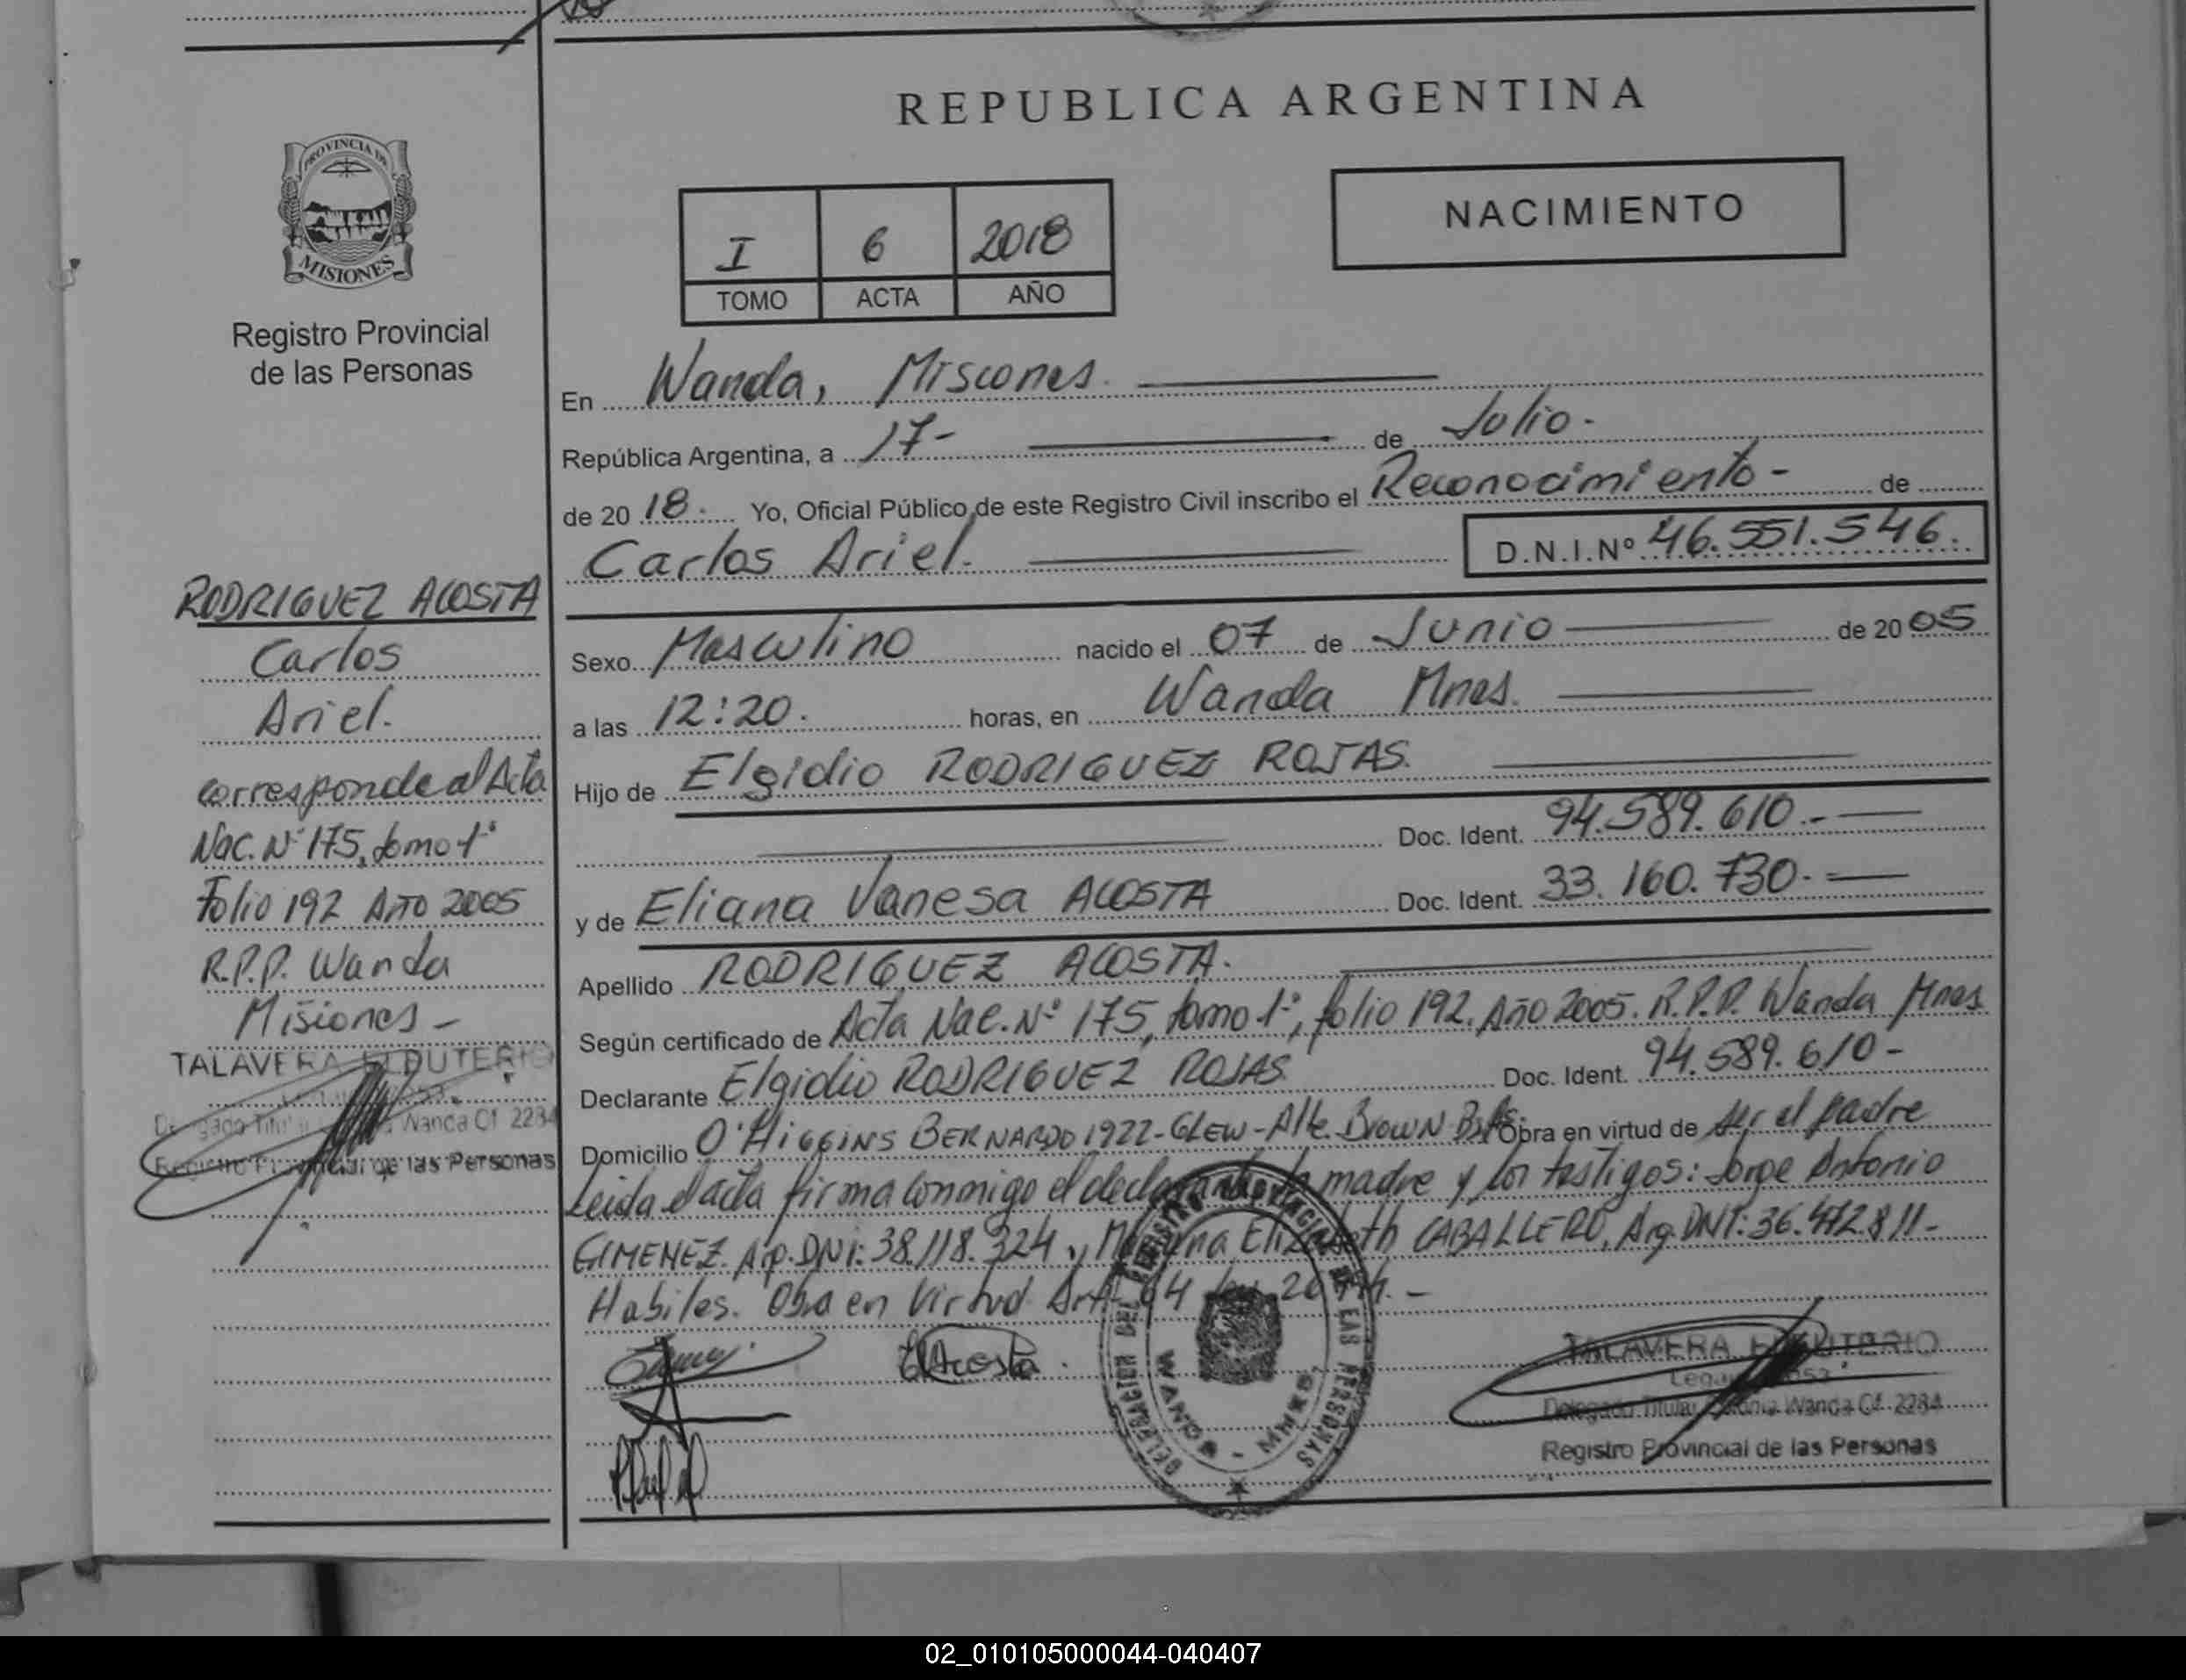 REPUBLICA ARGENTINA
PROVINCIA DE
MISIONES
Registro Provincial
de las Personas
I 6 2018
TOMO ACTA AÑO
NACIMIENTO
En Wanda, Misiones.
República Argentina, a 17- de Julio-
de 2018. Yo, Oficial Público de este Registro Civil inscribo el Reconocimiento- de
Carlos Ariel. D.N.I.Nº 46.551.546.
Sexo Masculino nacido el 07 de Junio de 2005
a las 12:20. horas, en Wanda Mnes.
Hijo de Elgidio RODRIGUEZ ROJAS.
Doc. Ident. 94.589.610.-
y de Eliana Vanesa ACOSTA Doc. Ident. 33.160.730.-
Apellido RODRIGUEZ ACOSTA.
Según certificado de Acta Nac. Nº 175, tomo 1º, folio 192. Año 2005. R.P.P. Wanda Mnes
Declarante Elgidio RODRIGUEZ ROJAS Doc. Ident. 94.589.610-
Domicilio O'HIGGINS BERNARDO 1922-GLEW-Alte. BROWN Bs As. Obra en virtud de ser el padre
Leida el acta firma conmigo el declarante la madre y los testigos: Jorge Antonio
GIMENEZ. Arg. DNI: 38.118.324 y Elizabeth CABALLERO, Arg. DNI: 36.472.811-
Habiles. Obra en Virtud Art. 64
EVAcosta.
DELEGACION DEL REGISTRO PROVINCIAL DE LAS PERSONAS
WANDA - MNES.
TALAVERA ELEUTERIO
Delegado Titular Colonia Wanda Cf. 2284
Registro Provincial de las Personas
RODRIGUEZ ACOSTA
Carlos
Ariel.
corresponde al Acta
Nac. Nº 175, tomo 1º
Folio 192 Año 2005
R.P.P. Wanda
Misiones-
TALAVERA ELEUTERIO
Delegado Titular Wanda Cf 2284
Registro Provincial de las Personas
02_010105000044-040407